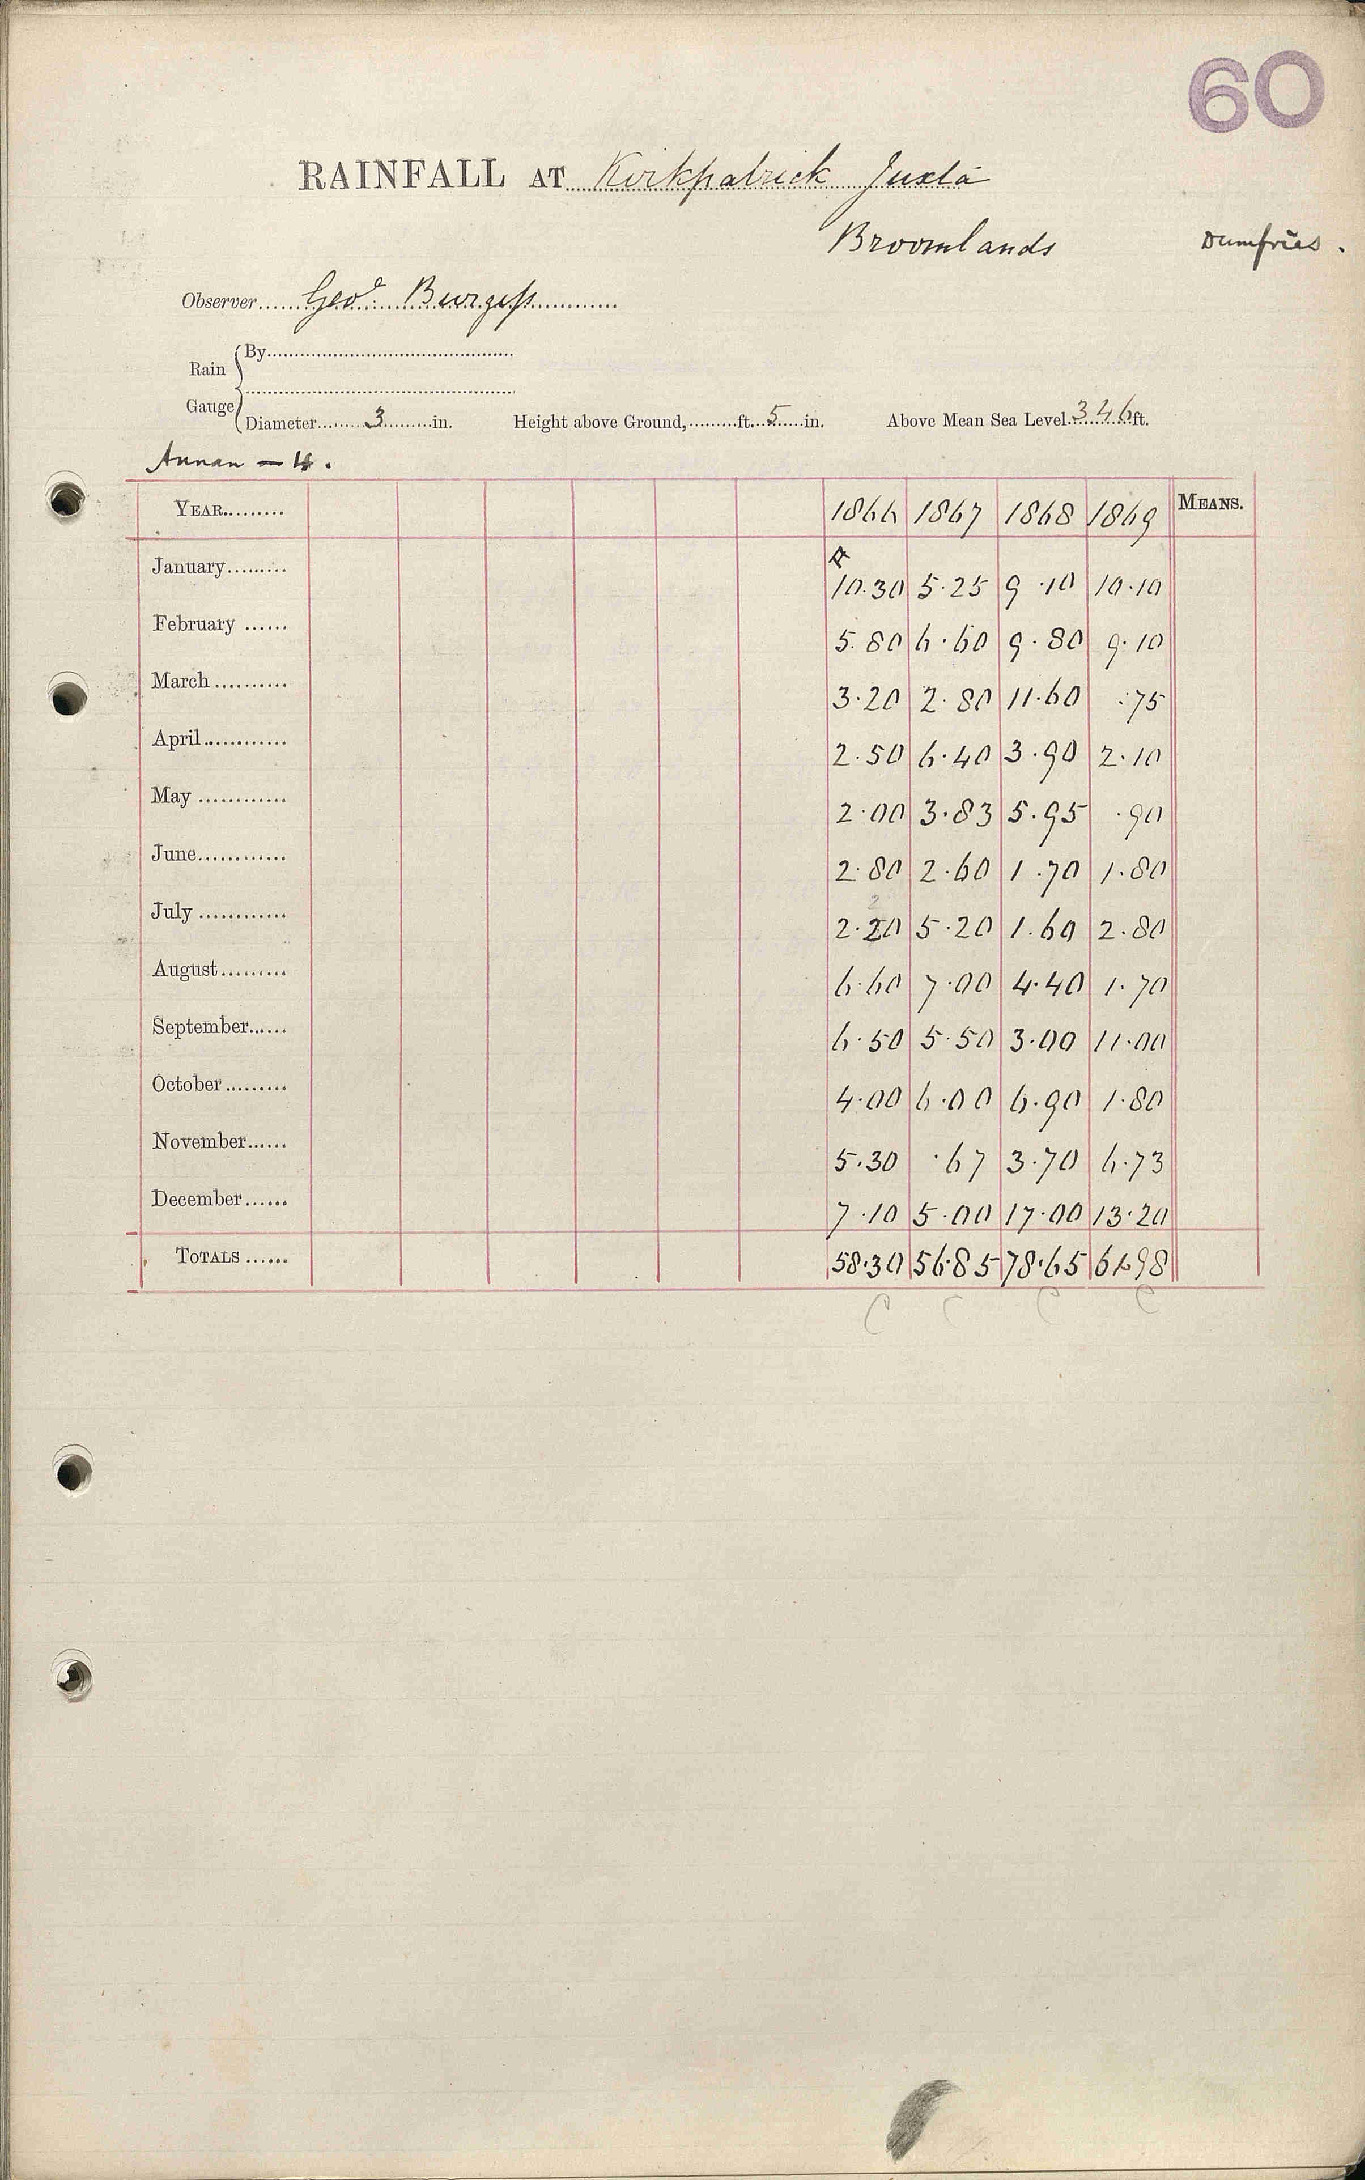 60
RAINFALL AT Kirkpatrick Juxta
Broomlands Dumfries.
Observer Geo. Burgess
Rain Gauge
By
Diameter 3 in. Height above Ground, ft. 5 in. Above Mean Sea Level 346 ft.
Annan — 4.
YEAR 1866 1867 1868 1869 MEANS.
January 10.30 5.25 9.10 10.10
February 5.80 6.60 9.80 9.10
March 3.20 2.80 11.60 .75
April 2.50 6.40 3.90 2.10
May 2.00 3.83 5.95 .90
June 2.80 2.60 1.70 1.80
July 2.20 5.20 1.60 2.80
August 6.60 7.00 4.40 1.70
September 6.50 5.50 3.00 11.00
October 4.00 6.00 6.90 1.80
November 5.30 .67 3.70 6.73
December 7.10 5.00 17.00 13.20
TOTALS 58.30 56.85 78.65 61.98
C C C C